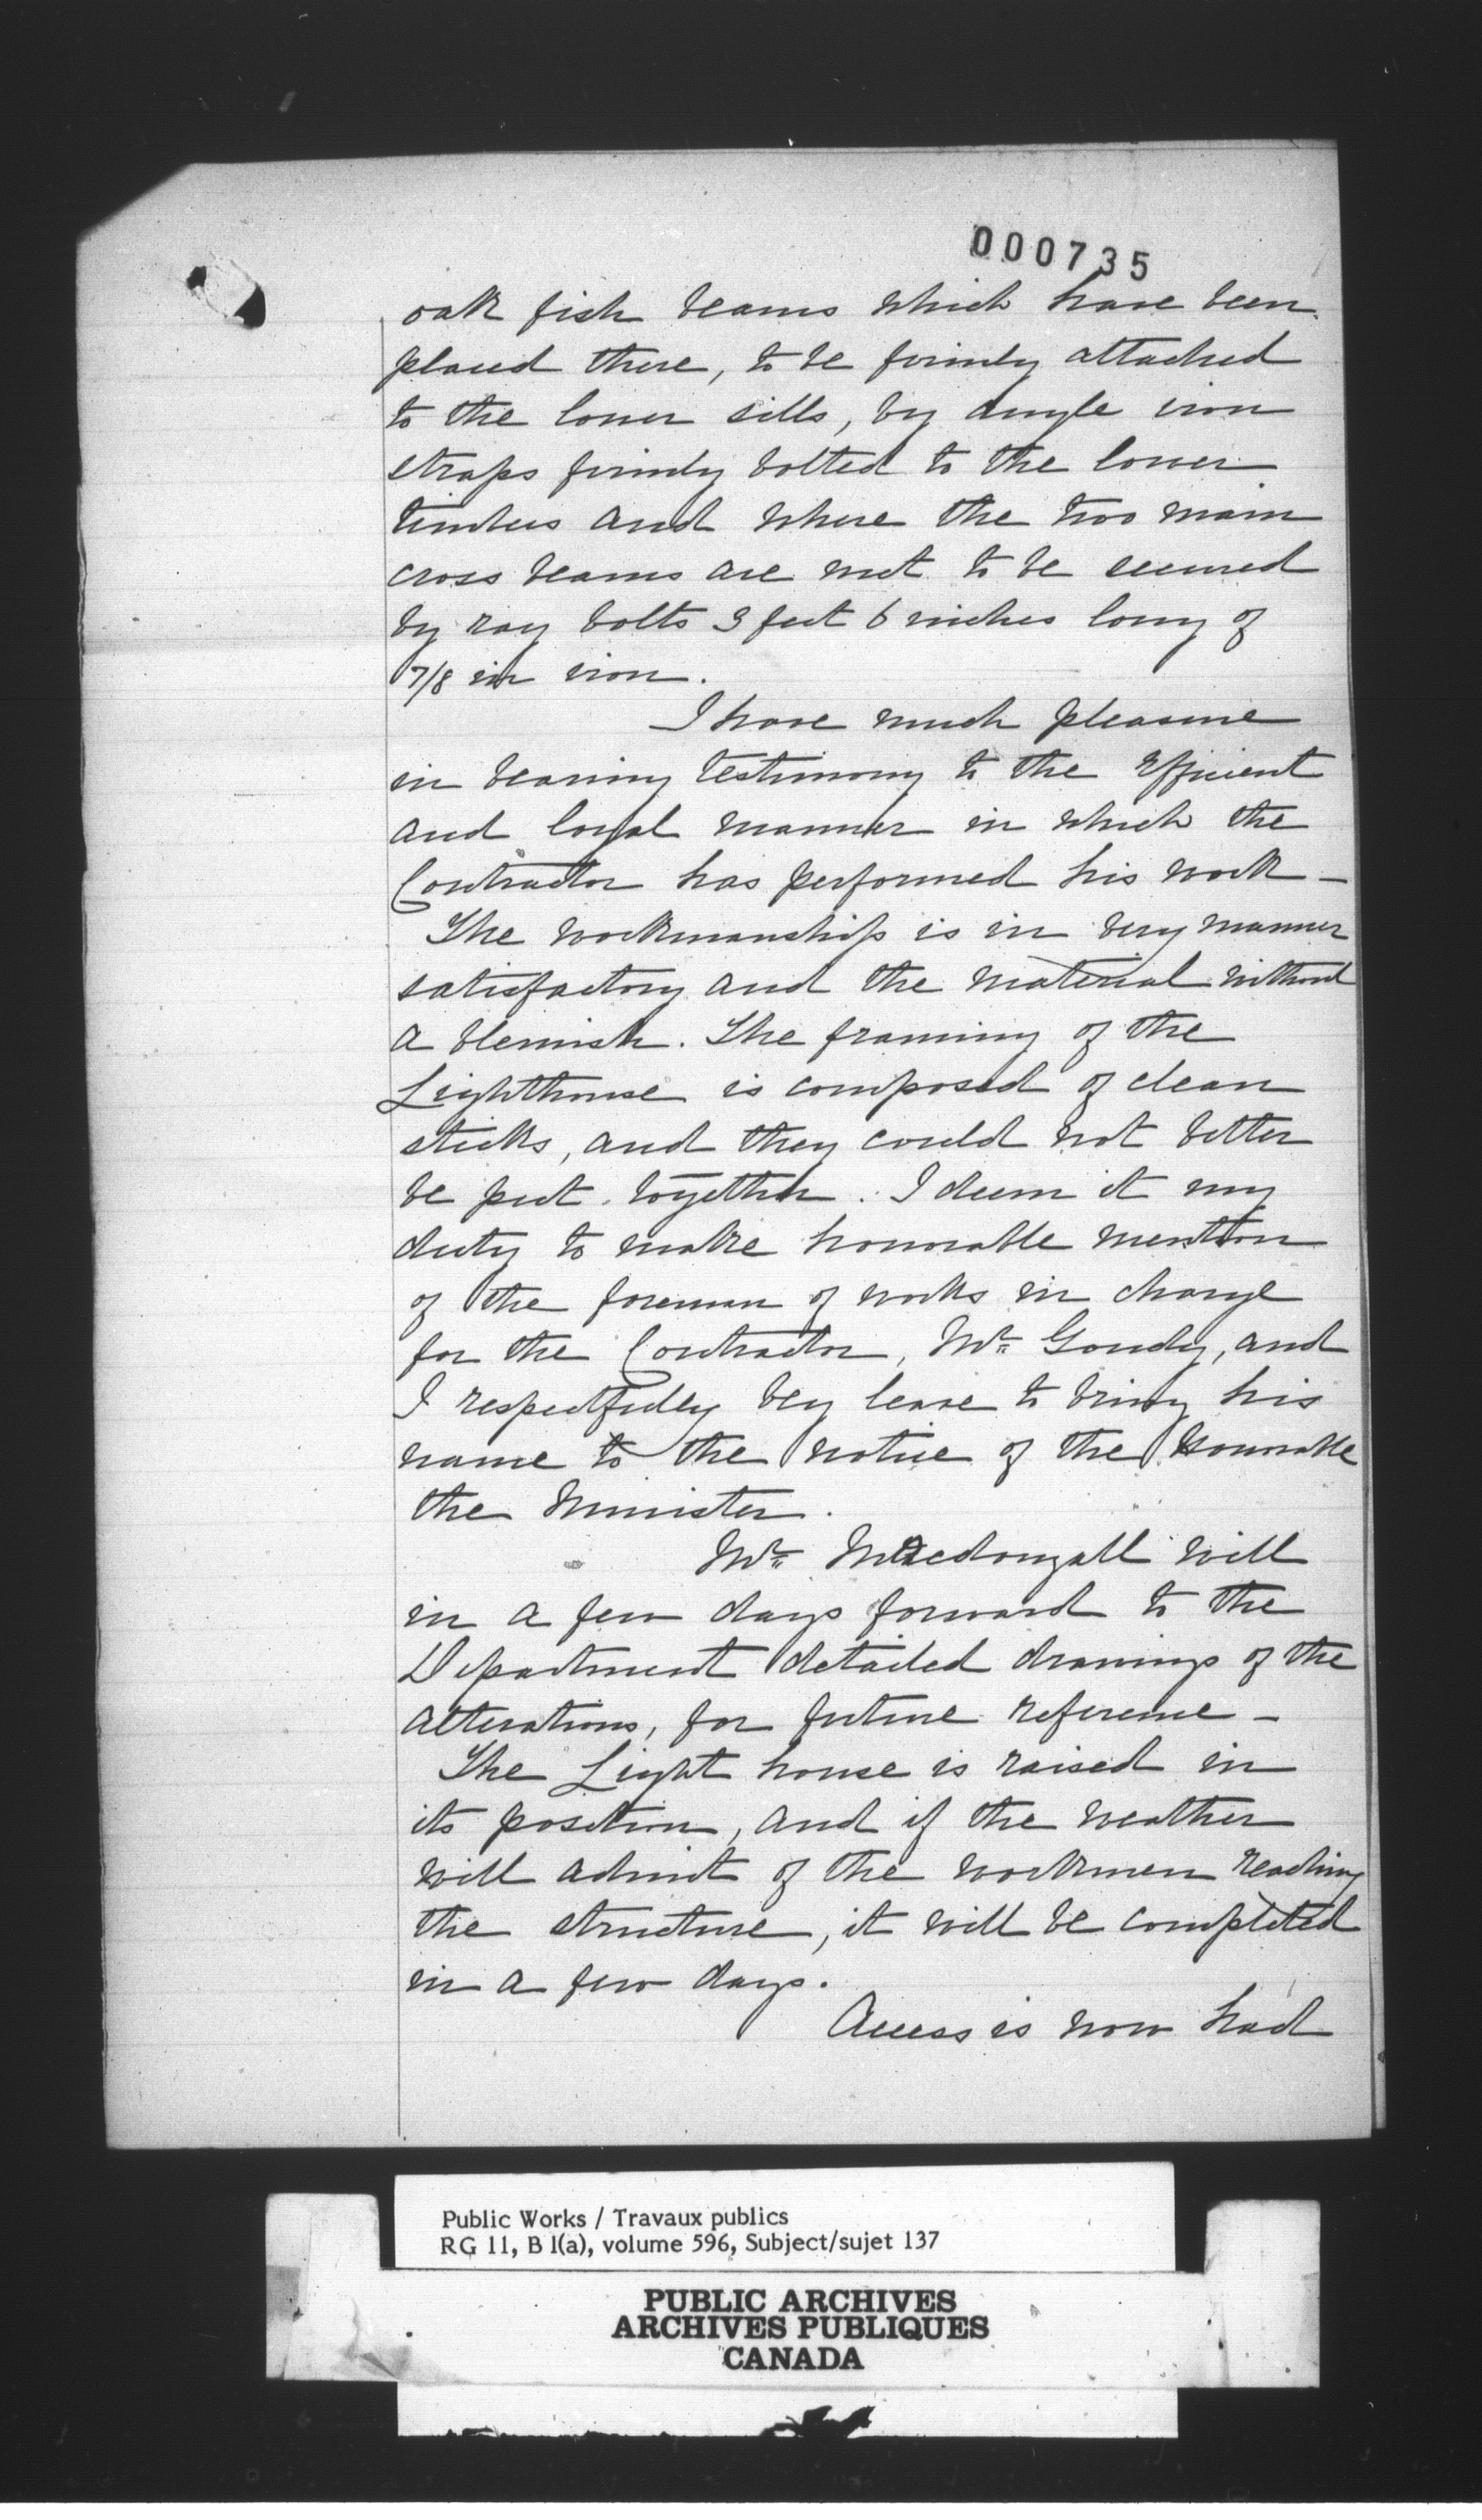 000735
oak fish beams which have been
placed there, to be firmly attached
to the lower sills, by angle iron
straps firmly bolted to the lower
timbers and where the two main
cross beams are met to be secured
by rag bolts 3 feet 6 inches long of
7/8 in iron.
I have much pleasure
in bearing testimony to the Efficient
and loyal manner in which the
Contractor has performed his work –
The workmanship is in very manner
satisfactory and the material without
a blemish. The framing of the
Lighthouse is composed of clean
sticks, and they could not better
be put together. I deem it my
duty to make honorable mention
of the foreman of works in charge
for the Contractor, Mr. Goudy, and
I respectfully beg leave to bring his
name to the notice of the Honorable
the Minister.
Mr. Macdougall will
in a few days forward to the
Department detailed drawings of the
alterations, for future reference –
The Light house is raised in
its position, and if the weather
will admit of the workmen reaching
the structure, it will be completed
in a few days.
Access is now had
Public Works / Travaux publics
RG 11, B 1(a), volume 596, Subject/sujet 137
PUBLIC ARCHIVES
ARCHIVES PUBLIQUES
CANADA